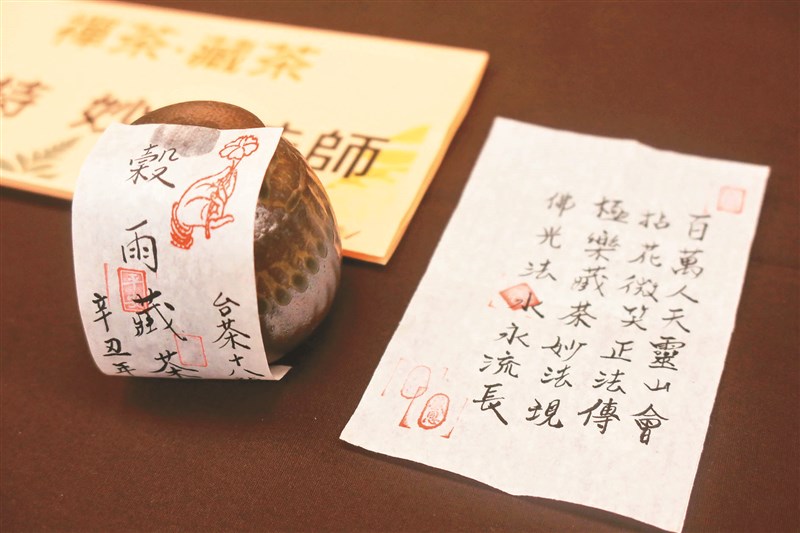 禪茶·藏茶
妙 師
穀雨藏茶
台茶十八
辛丑年
百萬人天靈山會
拈花微笑正法傳
極樂藏茶妙法現
佛光法水永流長